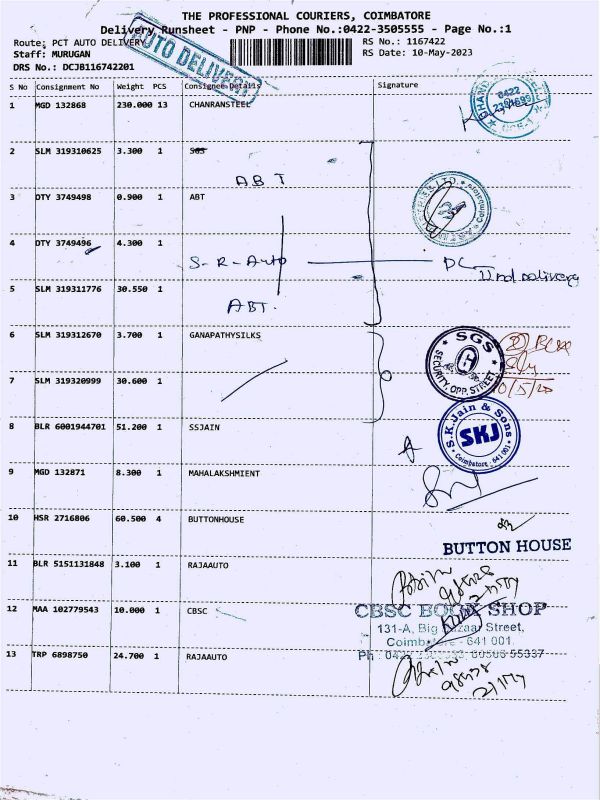 THE PROFESSIONAL COURIERS, COIMBATORE
Delivery Runsheet - PNP - Phone No.:0422-3505555 - Page No.:1
Route: PCT AUTO DELIVERY
RS No.: 1167422
Staff: MURUGAN
RS Date: 10-May-2023
DRS No.: DCJB116742201
AUTO DELIVERY
S No Consignment No Weight PCS Consignee Details Signature
1 MGD 132868 230.000 13 CHANRANSTEEL
2 SLM 319310625 3.300 1 SGS
ABT
3 DTY 3749498 0.900 1 ABT
4 DTY 3749496 4.300 1
S-R-Auto DC
5 SLM 319311776 30.550 1
ABT.
6 SLM 319312670 3.700 1 GANAPATHYSILKS
SGS
SECURITY, OPP. STREET
7 SLM 319320999 30.600 1
8 BLR 6001944701 51.200 1 SSJAIN
S.K.Jain & Sons
SKJ
Coimbatore - 641 001
9 MGD 132871 8.300 1 MAHALAKSHMIENT
10 HSR 2716806 60.500 4 BUTTONHOUSE
BUTTON HOUSE
11 BLR 5151131848 3.100 1 RAJAAUTO
12 MAA 102779543 10.000 1 CBSC
CBSC BOOK SHOP
131-A, Big Bazaar Street,
Coimbatore - 641 001.
13 TRP 6898750 24.700 1 RAJAAUTO